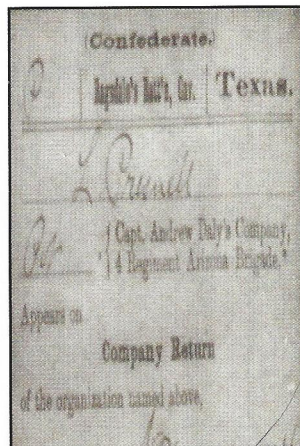 (Confederate.)
Ragsdale's Batt'n, Cav. Texas.
L
Pvt
Capt. Andrew Daly's Company,
4 Regiment Arizona Brigade.*
Appears on
Company Return
of the organization named above,